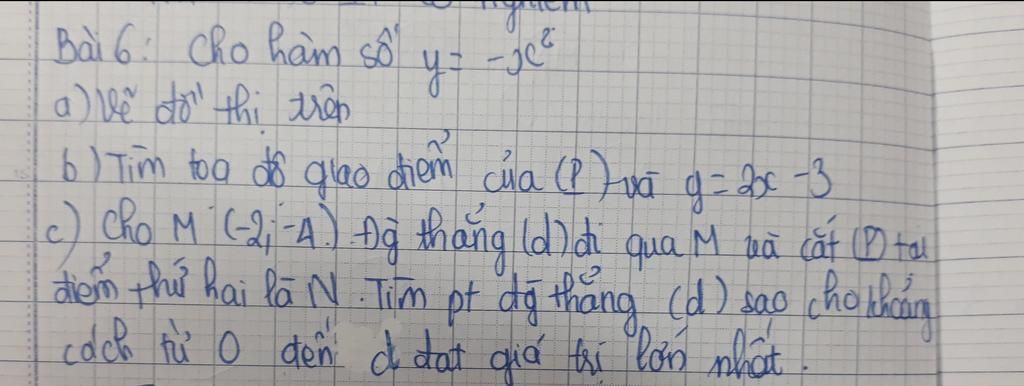 nghiệm
Bài 6: Cho hàm số y = -x²
a) Vẽ đồ thị trên
b) Tìm toạ độ giao điểm của (P) và y = 2x - 3
c) Cho M (-2; -4). Đg thẳng (d) đi qua M và cắt (P) tại
điểm thứ hai là N. Tìm pt đg thẳng (d) sao cho khoảng
cách từ O đến d đạt giá trị lớn nhất.